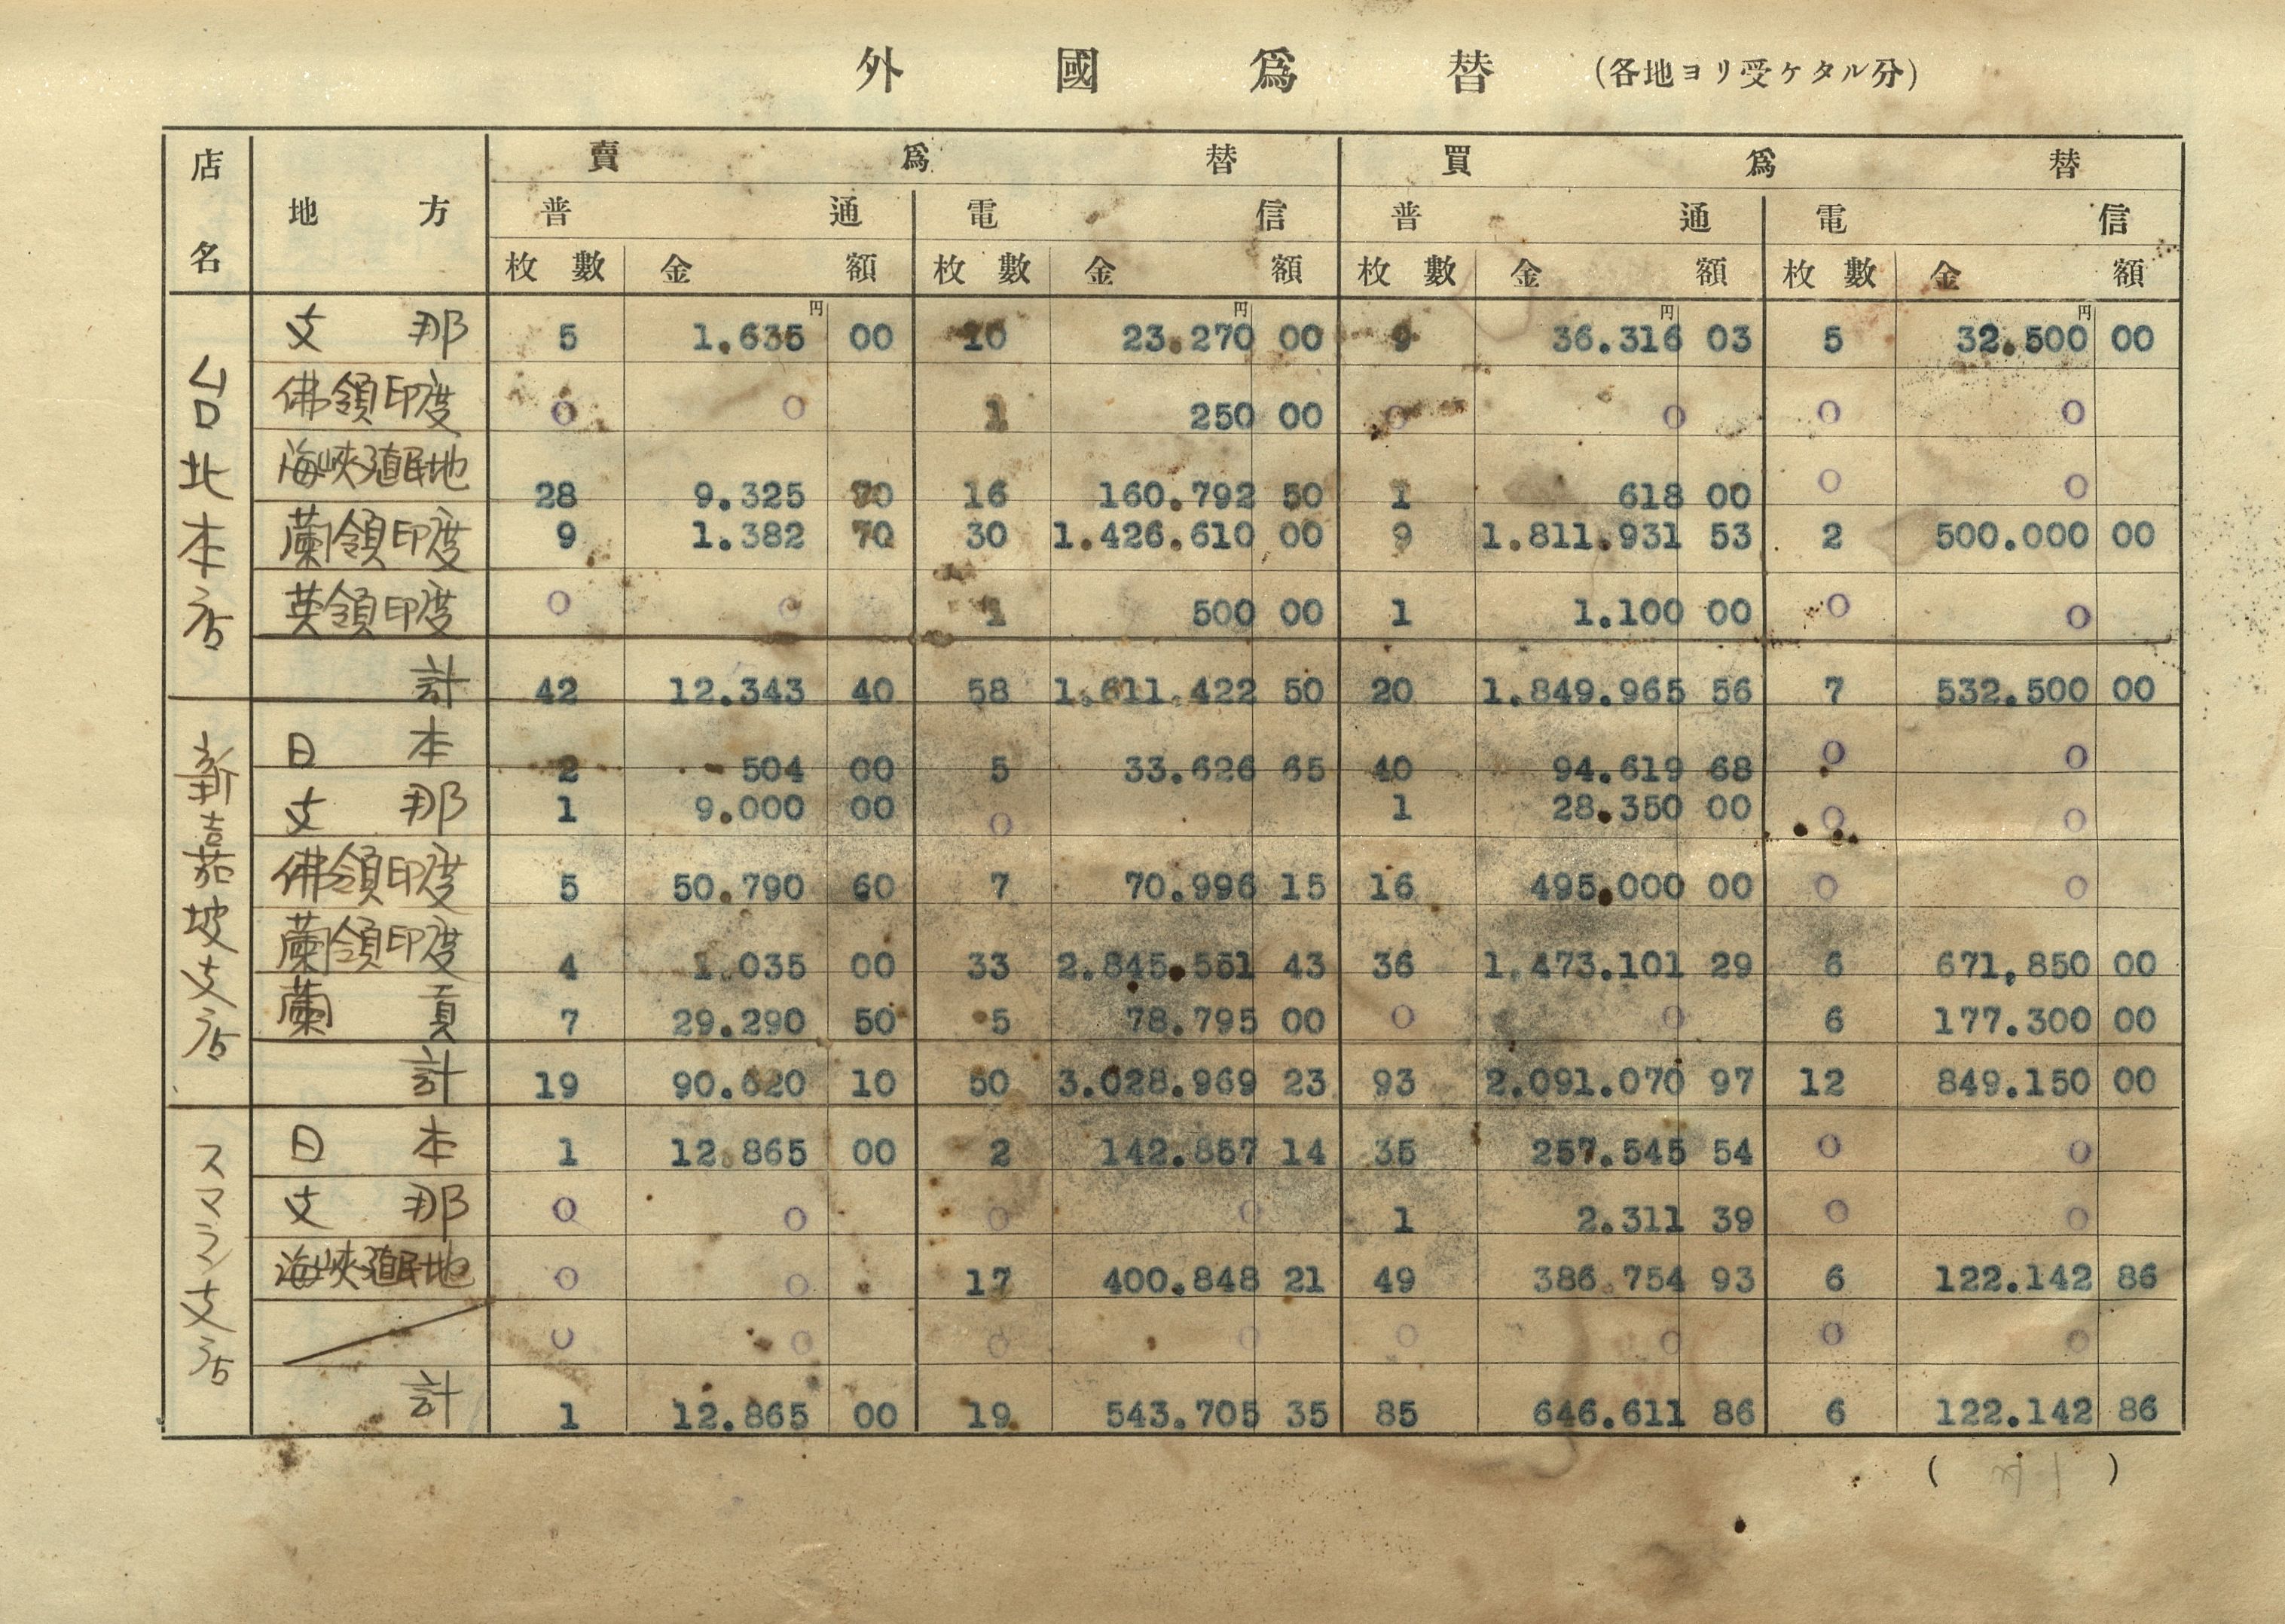 外國爲替 (各地ヨリ受ケタル分)
店名 地方 賣爲替 買爲替
普通 電信 普通 電信
枚數 金額 枚數 金額 枚數 金額 枚數 金額
円 円 円 円
台北本店
支那 5 1.635 00 10 23.270 00 9 36.316 03 5 32.500 00
佛領印度 0 0 1 250 00 0 0 0 0
海峽殖民地 28 9.325 70 16 160.792 50 1 618 00 0 0
蘭領印度 9 1.382 70 30 1.426.610 00 9 1.811.931 53 2 500.000 00
英領印度 0 0 1 500 00 1 1.100 00 0 0
計 42 12.343 40 58 1.611.422 50 20 1.849.965 56 7 532.500 00
新嘉坡支店
日本 2 504 00 5 33.626 65 40 94.619 68 0 0
支那 1 9.000 00 0 1 28.350 00 0 0
佛領印度 5 50.790 60 7 70.996 15 16 495.000 00 0 0
蘭領印度 4 1.035 00 33 2.845.551 43 36 1.473.101 29 6 671,850 00
蘭貢 7 29.290 50 5 78.795 00 0 0 6 177.300 00
計 19 90.620 10 50 3.028.969 23 93 2.091.070 97 12 849.150 00
スマラン支店
日本 1 12.865 00 2 142.857 14 35 257.545 54 0 0
支那 0 0 0 0 1 2.311 39 0 0
海峽殖民地 0 0 17 400.848 21 49 386.754 93 6 122.142 86
0 0 0 0 0 0 0 0
計 1 12.865 00 19 543.705 35 85 646.611 86 6 122.142 86